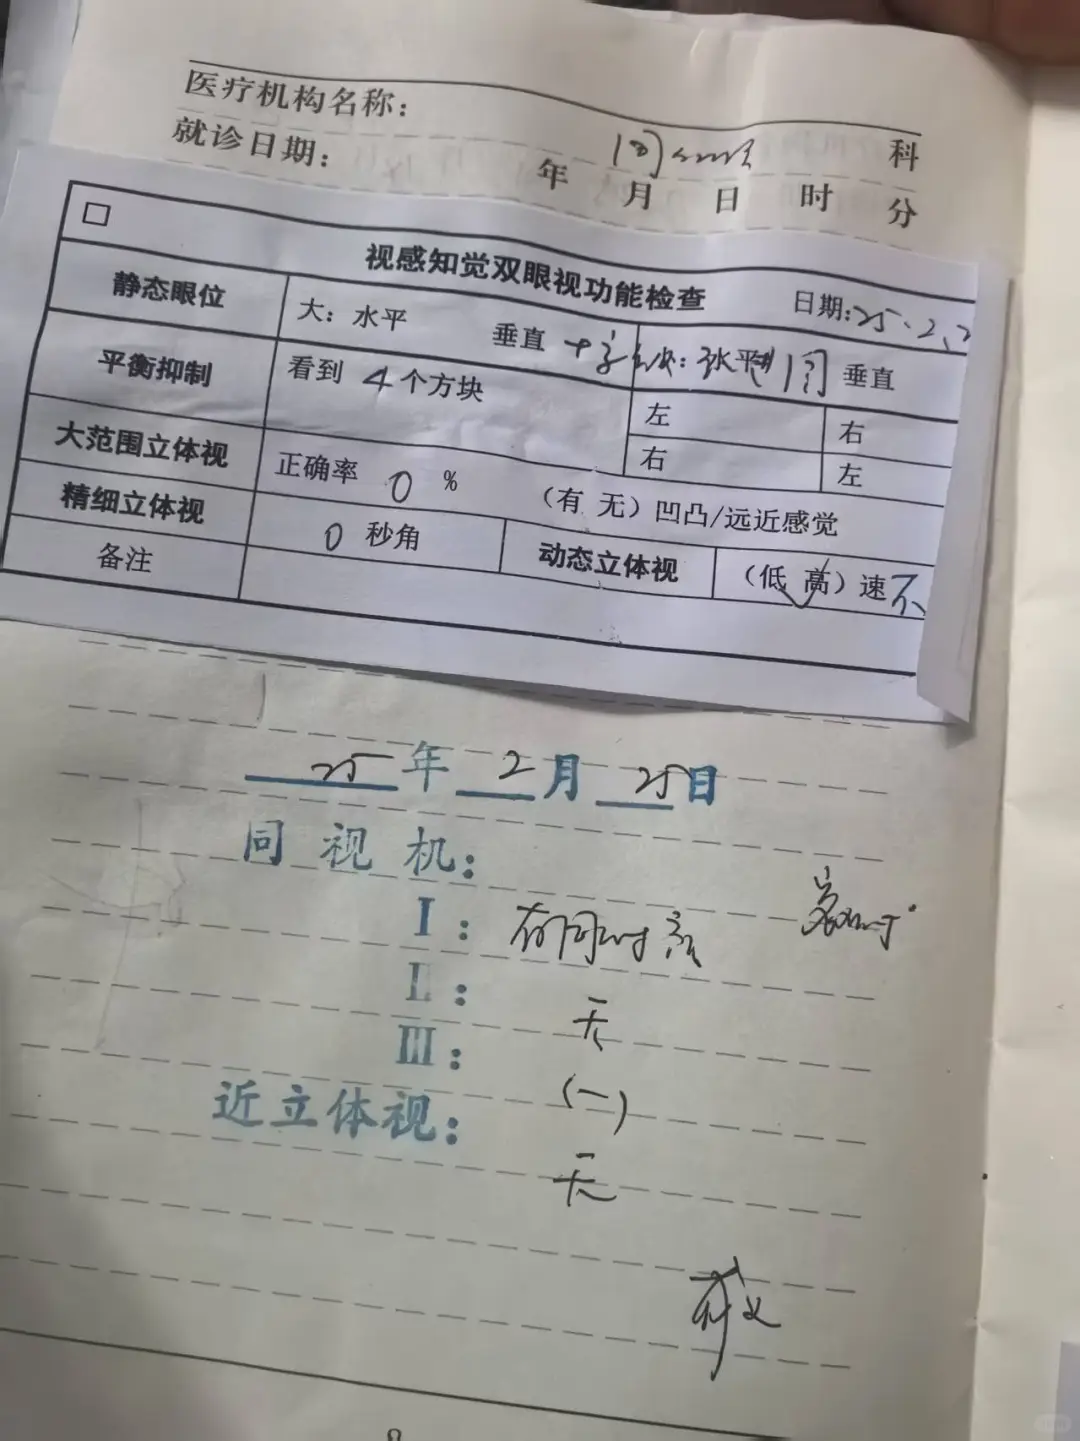 医疗机构名称： 科
就诊日期： 年 月 日 时 分
视感知觉双眼视功能检查 日期:25.2.2
静态眼位 大：水平 垂直 垂直
平衡抑制 看到 4 个方块 左 右
右 左
大范围立体视 正确率 0 % （有 无）凹凸/远近感觉
精细立体视 0 秒角 动态立体视 （低 高）速
备注
25 年 2 月 25 日
同 视 机：
I： 有同时
II： 无
III： (一)
近立体视： 无
8